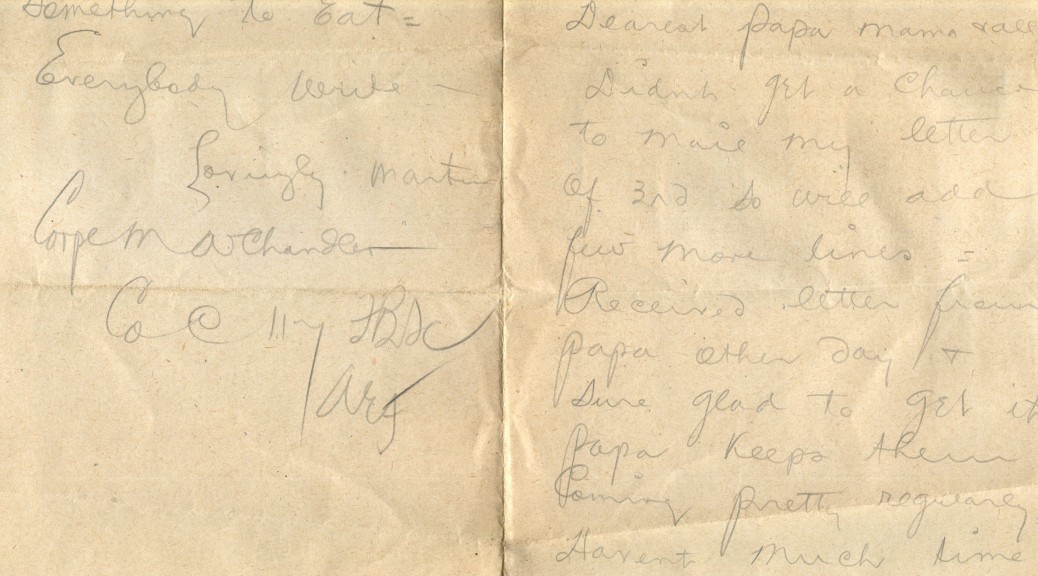 Something to Eat =
Everybody write —
Lovingly Martin
Corpl M A Chandler
Co C 117 FBSC
AEF
Dearest papa mama & all
Didnt get a Chance
to mail my letter
of 3rd so will add
few more lines =
Received letter from
papa other day &
Sure glad to get it
papa Keeps them
Coming pretty regular
Havent much time